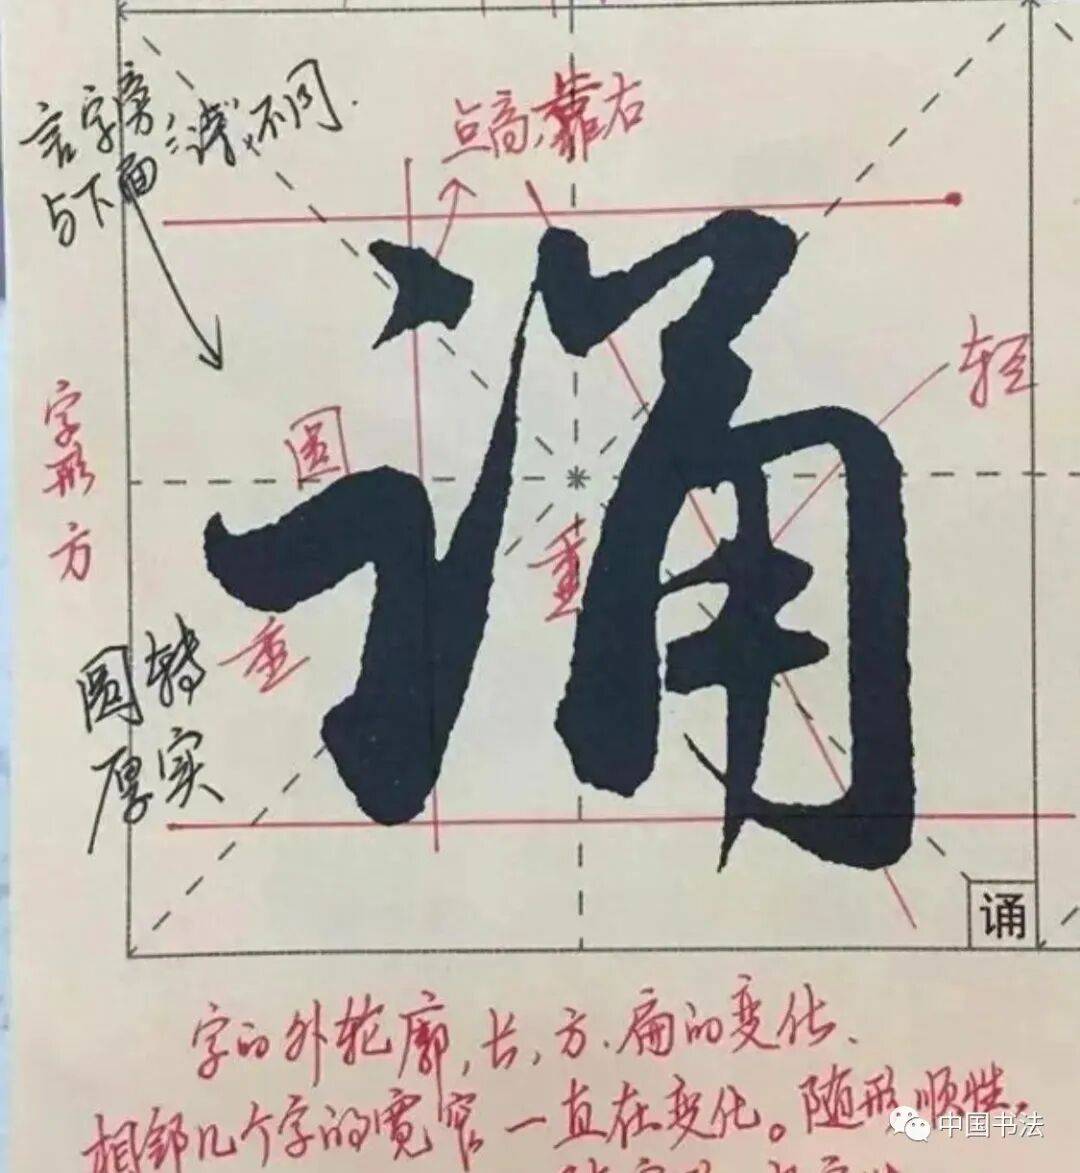 言字旁,
与下面"诗"不同.
点高,靠右
轻
字形方
圆
重
重
圆转
厚实
诵
诵
字的外轮廓,长,方.扁的变化.
相邻几个字的宽窄一直在变化。随形顺性.
中国书法